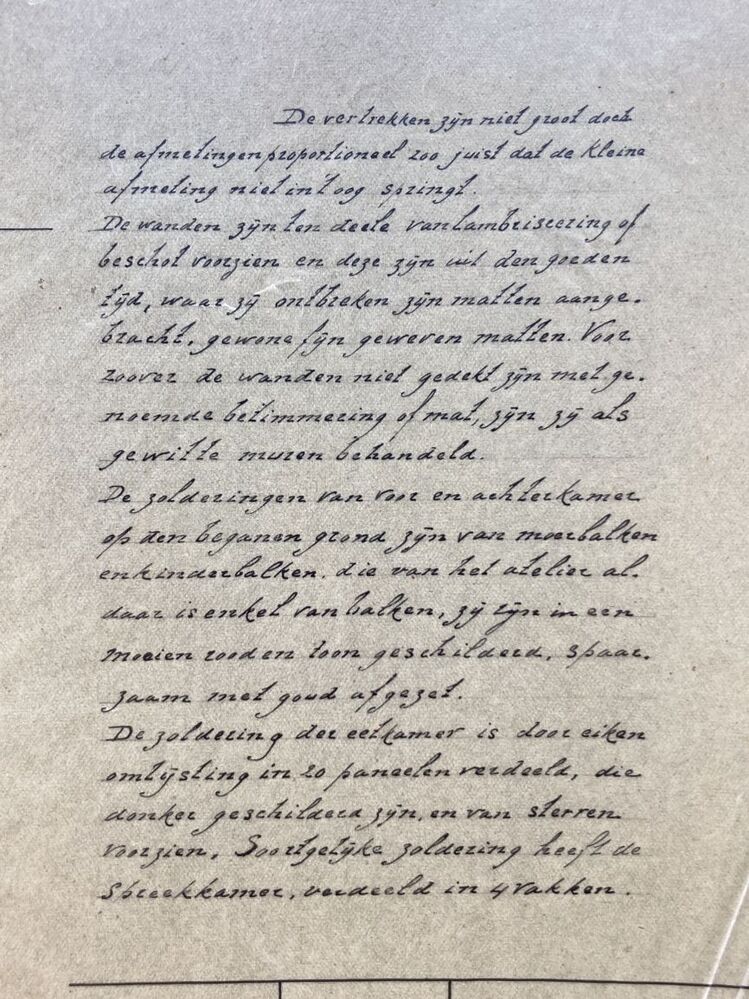 De vertrekken zijn niet groot doch
de afmetingen proportioneel zoo juist dat de kleine
afmeting niet in 't oog springt.
De wanden zijn ten deele van lambriseering of
beschot voorzien en deze zijn uit den goeden
tijd, waar zij ontbreken zijn matten aange-
bracht, gewone fijn geweven matten. Voor
zoover de wanden niet gedekt zijn met ge-
noemde betimmering of mat, zijn zij als
gewitte muren behandeld.
De zolderingen van voor en achterkamer
op den beganen grond zijn van moerbalken
en kinderbalken, die van het atelier al-
daar is enkel van balken, zij zijn in een
mooien rooden toon geschilderd, spaar-
zaam met goud afgezet.
De zoldering der eetkamer is door eiken
omlijsting in 20 paneelen verdeeld, die
donker geschilderd zijn, en van sterren
voorzien. Soortgelijke zoldering heeft de
spreekkamer, verdeeld in 4 vakken.